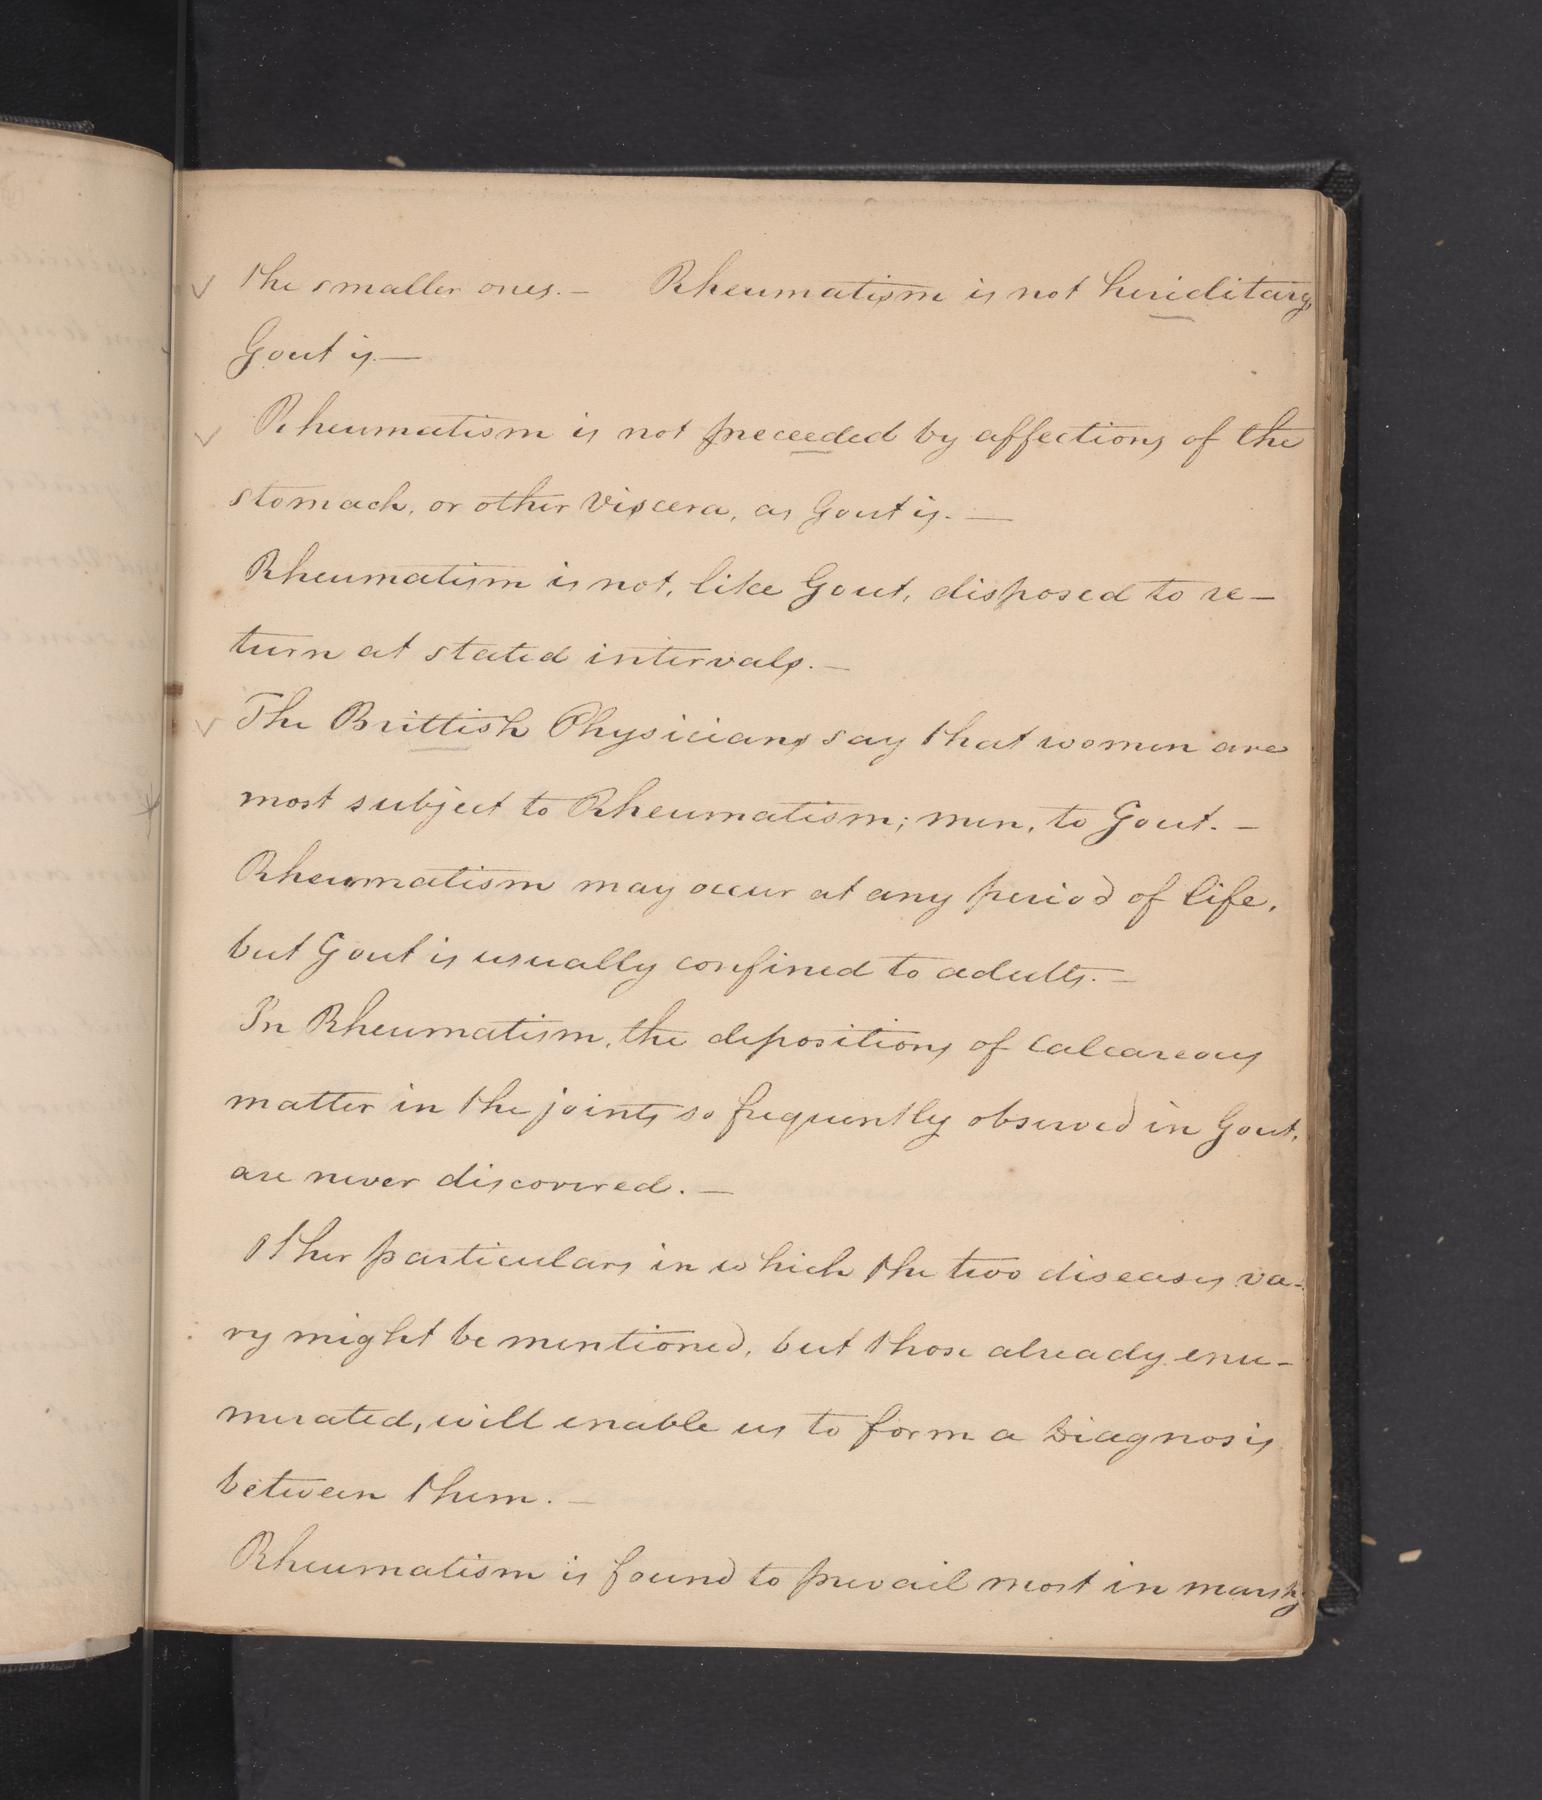 the smaller ones. — Rheumatism is not hiriditary,
Gout is —
Rheumatism is not preceeded by affections of the
stomach, or other viscera, as Gout is. —
Rheumatism is not, like Gout, disposed to re-
turn at stated intervals. —
The Brittish Physicians say that women are
most subject to Rheumatism; men, to Gout. —
Rheumatism may occur at any period of life,
but Gout is usually confined to adults. —
In Rheumatism, the depositions of calcareous
matter in the joints so frequently observed in Gout,
are never discovered. —
Other particulars in which the two diseases va-
ry might be mentioned, but those already enu-
merated, will enable us to form a Diagnosis
between them. —
Rheumatism is found to prevail most in marshy